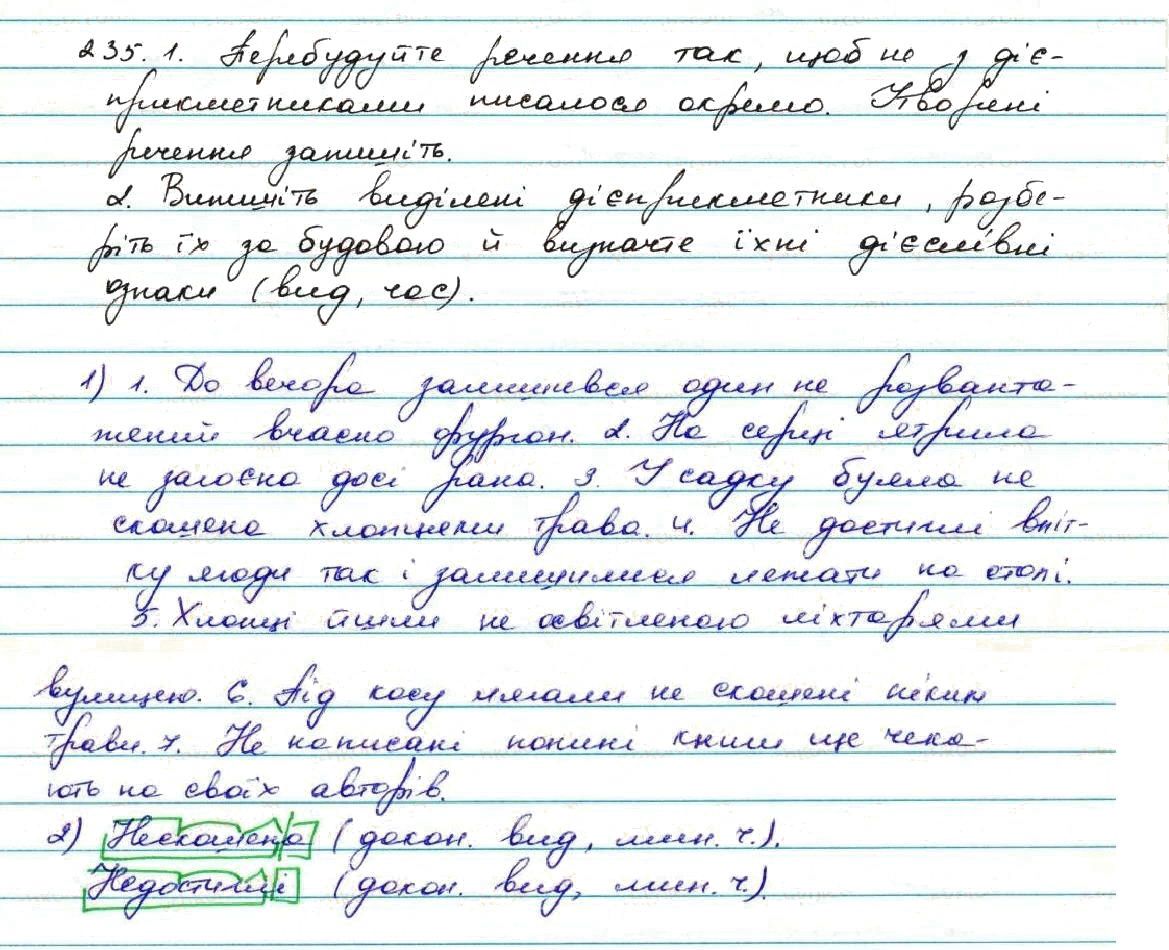 235. 1. Перебудуйте речення так, щоб не з діє-
прикметниками писалося окремо. Утворені
речення запишіть.
2. Випишіть виділені дієприкметники, розбе-
ріть їх за будовою й визначте їхні дієслівні
ознаки (вид, час).
1) 1. До вечора залишився один не розванта-
жений вчасно фургон. 2. На серці ятрила
не загоєна досі рана. 3. У садку буяла не
скошена хлопцями трава. 4. Не достиглі вліт-
ку ягоди так і залишилися лежати на столі.
5. Хлопці йшли не освітленою ліхтарями
вулицею. 6. Під косу лягали не скошені ніким
трави. 7. Не написані понині книги ще чека-
ють на своїх авторів.
2) Нескошена (докон. вид, мин. ч.).
Недостиглі (докон. вид, мин. ч.).